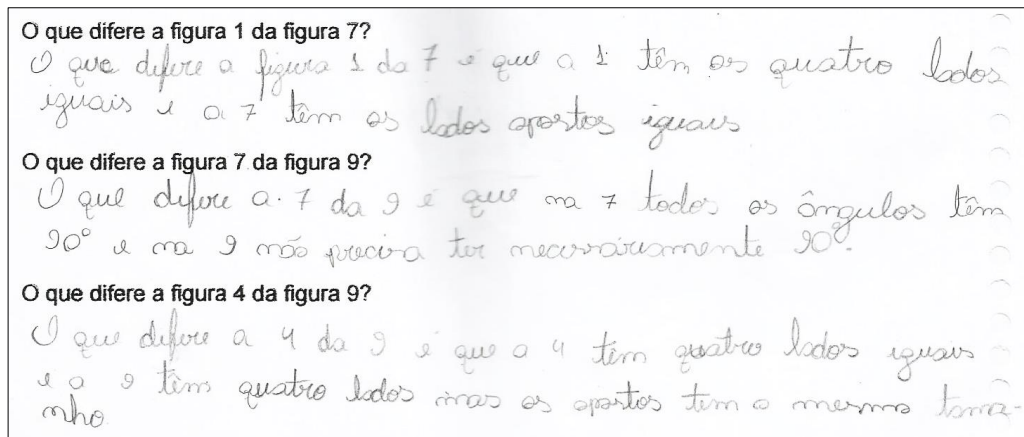 O que difere a figura 1 da figura 7?
O que difere a figura 1 da 7 é que a 1 têm os quatro lados
iguais e a 7 têm os lados opostos iguais
O que difere a figura 7 da figura 9?
O que difere a 7 da 9 é que na 7 todos os ângulos têm
90° e na 9 não precisa ter necessáriamente 90°.
O que difere a figura 4 da figura 9?
O que difere a 4 da 9 é que a 4 têm quatro lados iguais
e a 9 têm quatro lados mas os opostos tem o mesmo tama-
nho